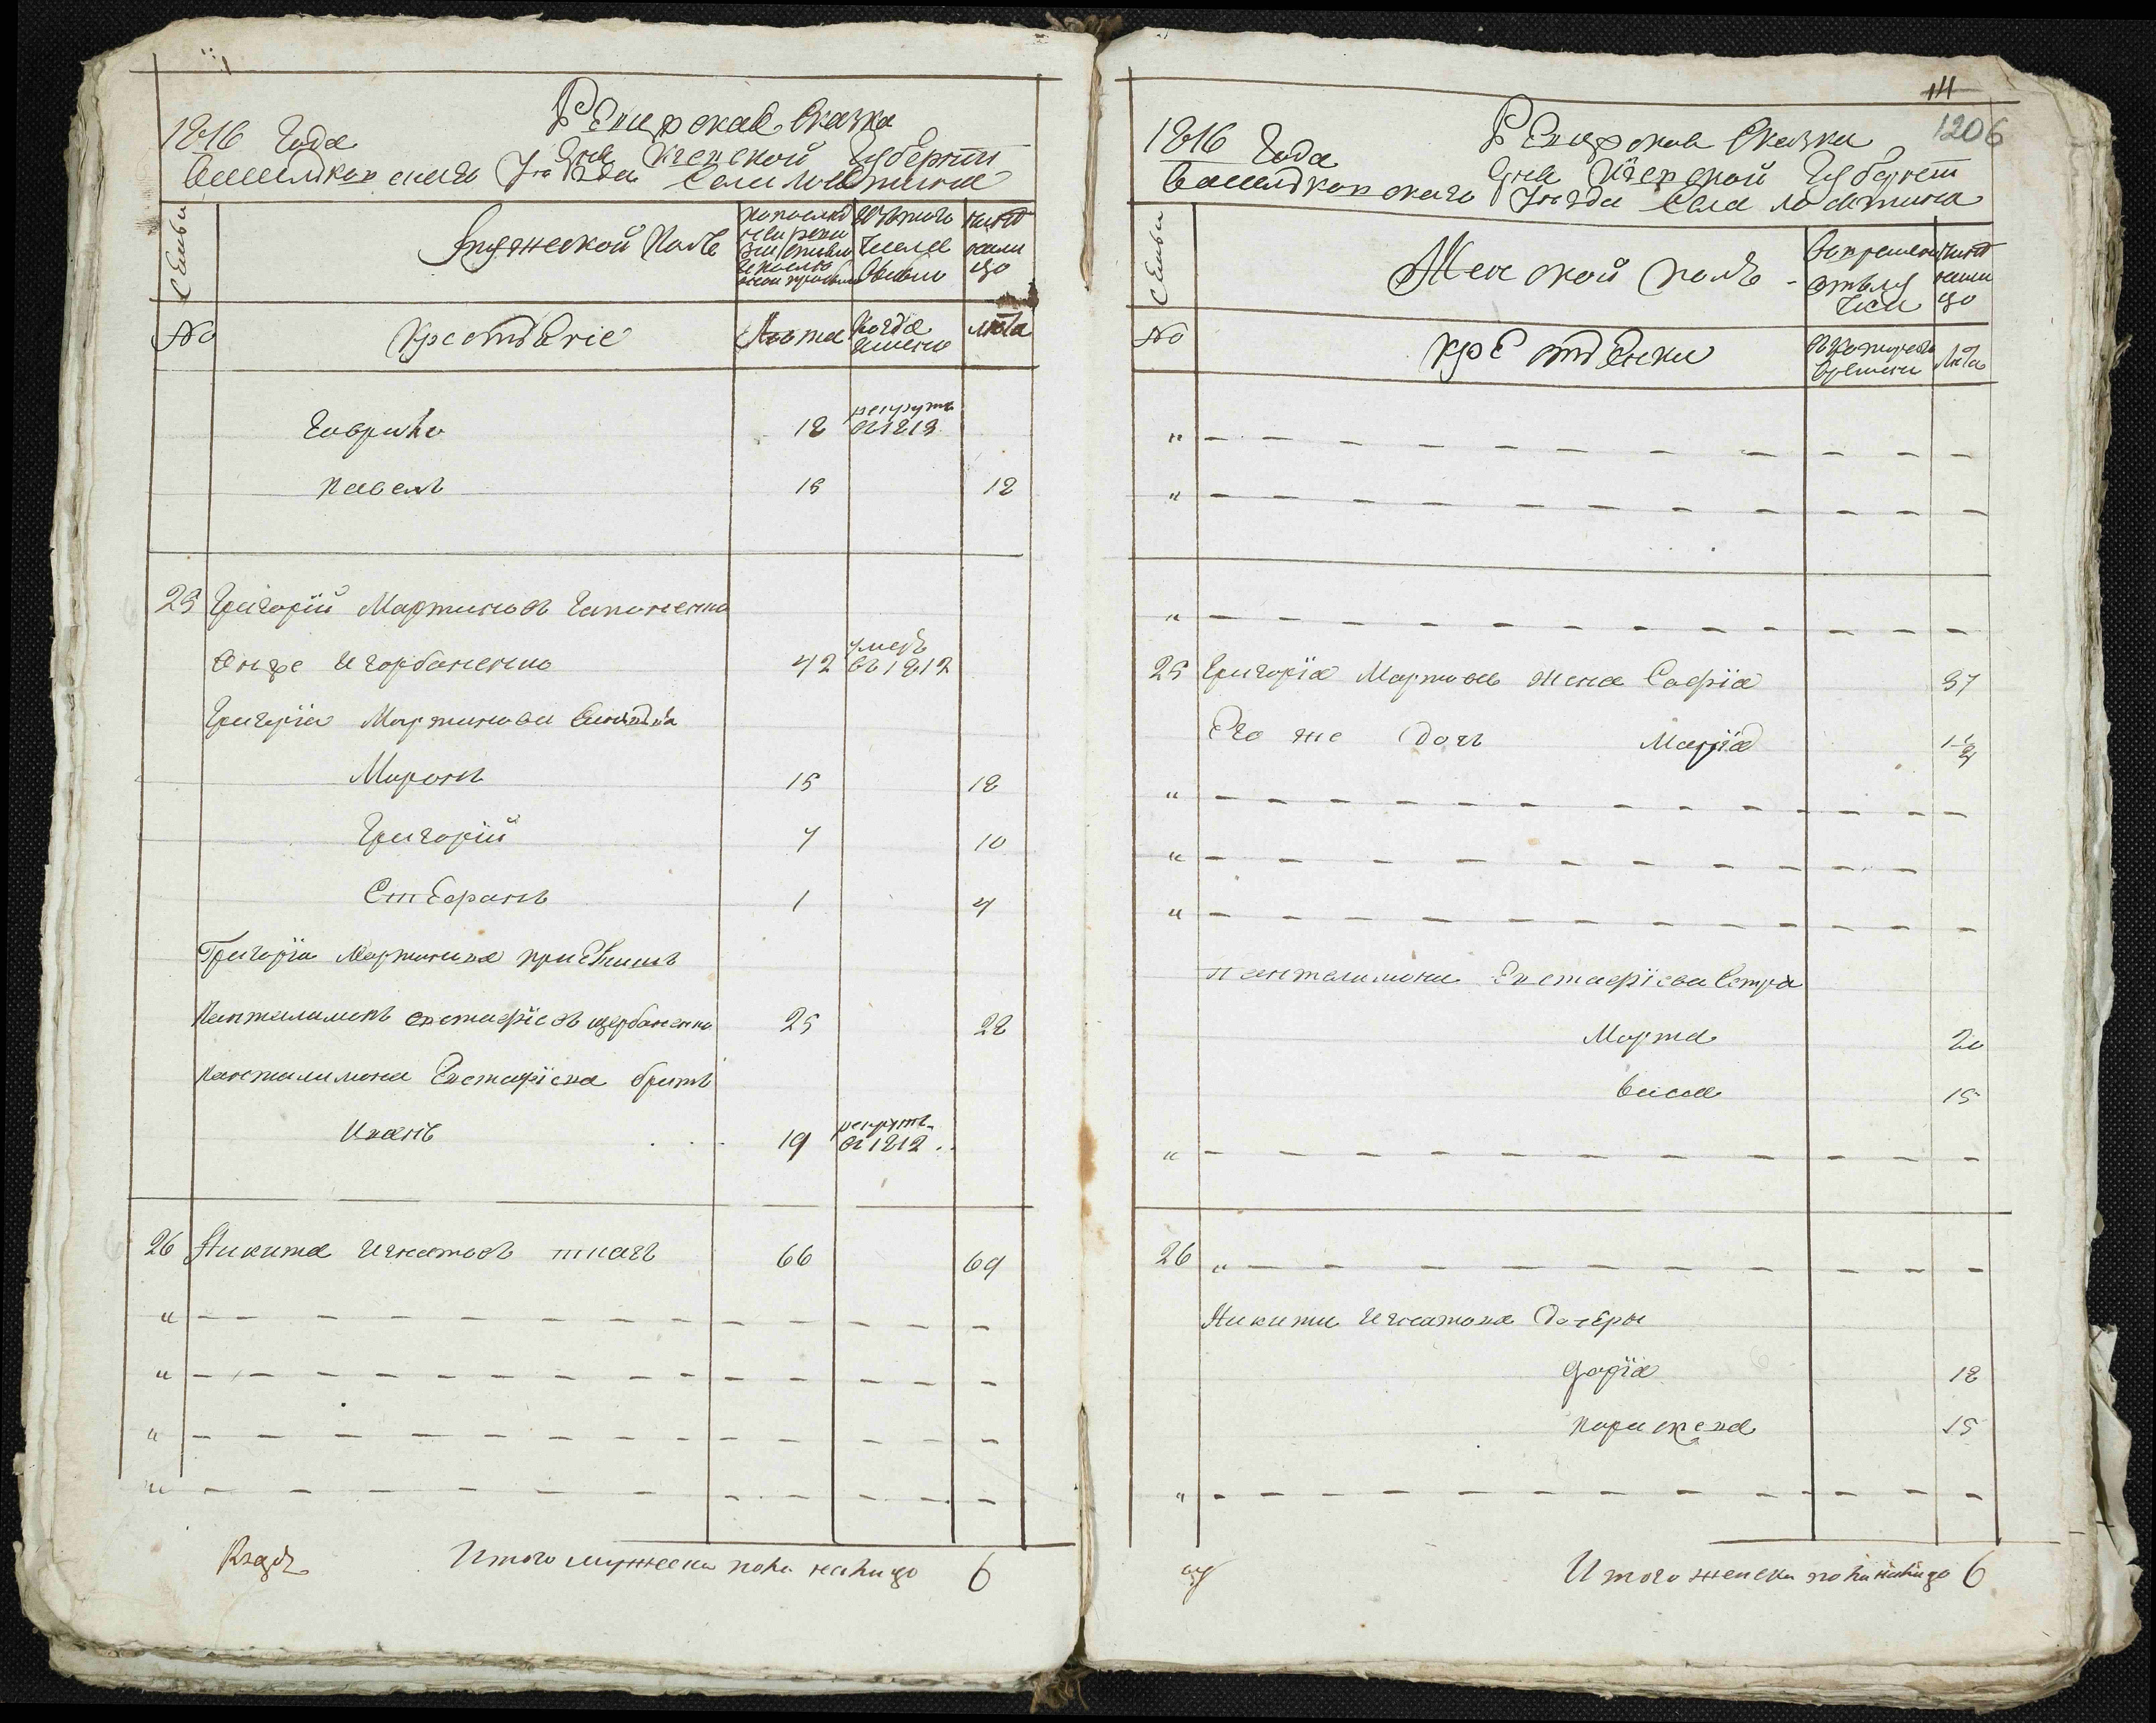 1816 Года
Ревизская Сказка
Дня Киевской Губерніи
Васильковскаго Уезда Села
Семьи
Мужеской Полъ
по последней ревизии состояло и после оной прибыло
Изъ того числа выбыло
ныне на лицо
№
Крестьяне
Лета
Когда имянно
Лета
Гаврило 18 рекрутъ въ 1813
Павелъ 15 18
25 Григорій Мартиновъ Гапоненко
Онъ же и горбаненко 42 умеръ въ 1812
Григорія Мартинова Сыновья
Миронъ 15 18
Григорій 7 10
Стефанъ 1 4
Григорія Мартинова приемишъ
Панталимонъ Евстафіевъ щербаненко 25 28
Панталимона Евстафіева братъ
Иванъ 19 рекрутъ въ 1812
26 Никита Игнатовъ ткачъ 66 69
" — — — — — — — — — — — —
" — — — — — — — — — — — —
" — — — — — — — — — — — —
" — — — — — — — — — —
Итого мужеска пола налицо 6
14
1206
1816 Года
Ревизская Сказка
Дня Кіевской Губерніи
Васильковскаго Уезда Села
Семьи
Женской полъ
Во временной отлучки
ныне налицо
№
крестьянки
съ котораго времени
Лета
" — — — — — — — — — —
" — — — — — — — — — —
" — — — — — — — — — — —
25 Григорія Мартинова жена Софія 37
Его же дочь Марія 1 1/2
" — — — — — — — — — — —
" — — — — — — — — —
" — — — — — — — — — — —
Панталимона Евстафіева Сестра
Марта 20
Васса 15
" — — — — — — — — — — —
26 " — — — — — — — — — —
Никити Игнатова Дочеры
Дарія 18
Параскева 15
" — — — — — — — — — — —
Итого женска пола налицо 6